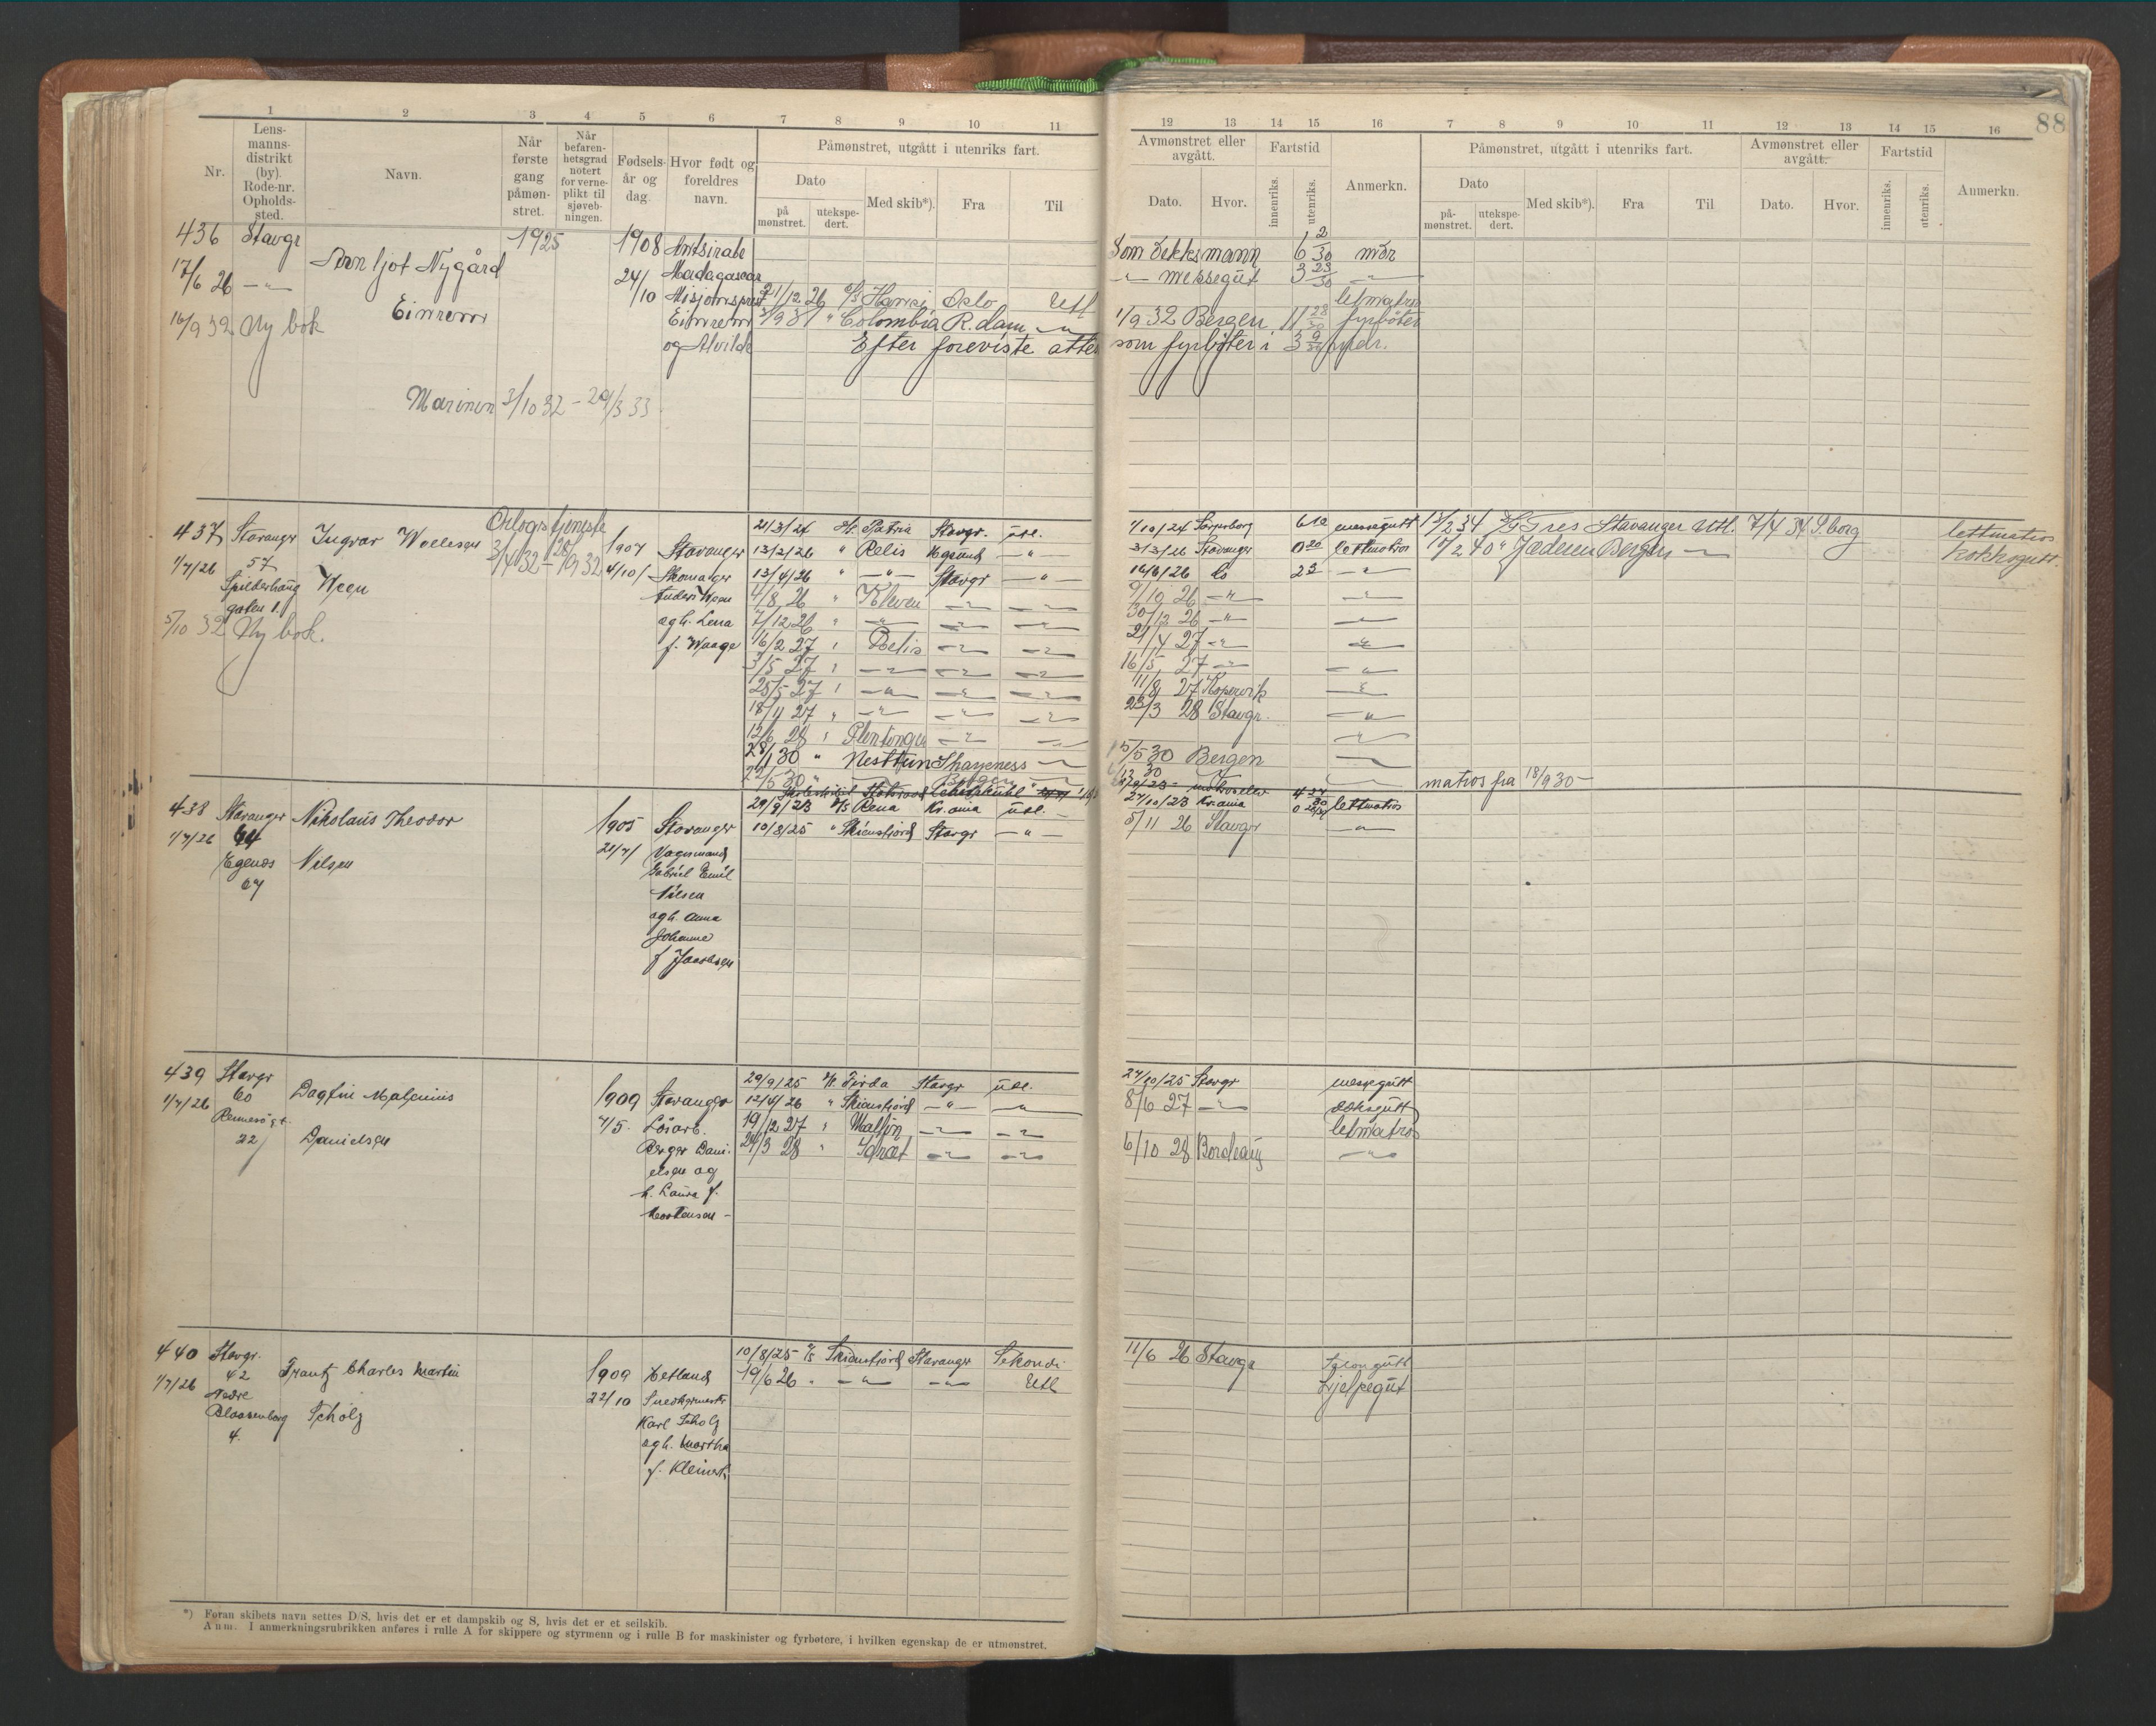 88
1 2 3 4 5 6 7 8 9 10 11
Nr.
Lens-
manns-
distrikt
(by).
Rode-nr.
Opholds-
sted.
Navn.
Når
første
gang
påmøn-
stret.
Når
befaren-
hetsgrad
notert
for verne-
plikt til
sjøveb-
ningen.
Fødsels-
år og
dag.
Hvor født og
foreldres
navn.
Påmønstret, utgått i utenriks fart.
Dato
på
mønstret.
utekspe-
dert.
Med skib*).
Fra
Til
12 13 14 15 16 7 8 9 10 11 12 13 14 15 16
Avmønstret eller
avgått.
Dato.
Hvor.
Fartstid
innenriks.
utenriks.
Anmerkn.
Påmønstret, utgått i utenriks fart.
Dato
på-
mønstret.
utekspe-
dert.
Med skib*).
Fra
Til
Avmønstret eller
avgått.
Dato.
Hvor.
Fartstid
innenriks.
utenriks.
Anmerkn.
436 Stavgr
17/6 26 — " —
16/9 32 Ny bok
Arn ljot Nygård
Einrem
1925
1908
24/
/10
Antsirabe
Madagascar
Misjonsprest
Einrem
og Alvilde
21/12 26 D/S Hansi Oslo Utl
" Colombia R.dam — " —
Efter foreviste atter
Marinen 3/10 32 – 29/3 33
Som dekksmann 6 2/30 mdr
— " — messegut 3 23/30 — " —
letmatros
1/9 32 Bergen 11 28/30 fyrbøter
som fyrbøter i 3 9/30 mdr.
437 Stavanger
1/7/26 57
Spilderhaug
gaten 1.
5/10 32 Ny bok.
Ingvar
Ween
Orlogstjeneste
3/4 32 – 28/9 32
1907
4/10/
Stavanger
Skomager
Anders Ween
og h. Lena
f. Waage
21/3/24 Patria Stavgr. utl.
13/2/26 " Relis — " —
13/4/26 " — " — Stavgr — " —
4/8 26 " Kleven — " — — " —
7/12 26 " — " — — " — — " —
16/2 27 " Relis — " — — " —
3/5 27 " — " — — " — — " —
25/5 27 " — " — — " — — " —
18/11 27 " — " — — " — — " —
12/6 28 " — " — — " —
28/1 30 " Nesttun — " —
22/5 30 " Bergen
1/10/24 Sarpsborg messegutt
31/3/26 Stavanger 0 20 lettmatros
16/6/26 do 23 — " —
9/10 26 — " — — " —
30/12 26 — " — — " —
21/4 27 — " — — " —
16/5 27 — " —
11/8 27 Kopervik — " —
23/3 28 Stavgr. — " —
5/5 30 Bergen
matros fra 18/9 30 –
13/2 34 Tres Stavanger Utl. 7/4 34 S.borg lettmatros
10/2 40 " Jæderen Bergen — " — kokksgutt.
438 Stavanger
1/7/26 64
Egenes
67
Nikolaus Theodor
Nilsen
1905
21/7/
Stavanger
Gabriel Emil
Nilsen
og h. Anna
Johanne
f Jacobsen
29/9/23 D/S Rena Kr.ania utl.
10/8/25 " Skiensfjord Stavgr — " —
27/10/23 Kr.ania lettmatros
5/11 26 Stavgr — " —
439 Stavgr
1/7/26 60
Rennesøgt.
22
Dagfin
Danielsen
1909
4/5.
Stavanger
Løsarb.
Berger Dani-
elsen og
h. Laura f.
Mortensen –
29/9/25 Firda Stavgr utl.
12/4/26 " Skiensfjord — " — — " —
19/12 27 " — " — — " —
24/3 28 " — " — — " —
27/10/25 Stavgr messegutt
8/6 27 — " — dæksgutt
letmatros
6/10 28 Bordeaux — " —
440 Stavgr.
1/7/26 42
Nedre
Blaasenborg
4.
Frantz Charles Martin
Scholz
1909
22/10
Hetland
Snedkermester
Karl Scholz
og h. Martha
f. Kleinert
10/8/25 D/S Skiensfjord Stavanger Sekondi
19/6 26 " — " — — " — Utl
11/6 26 Stavgr
Hjelpegut
*) Foran skibets navn settes D/S, hvis det er et dampskib og S, hvis det er et seilskib.
Anm. I anmerkningsrubrikken anføres i rulle A for skippere og styrmenn og i rulle B for maskinister og fyrbøtere, i hvilken egenskap de er utmønstret.